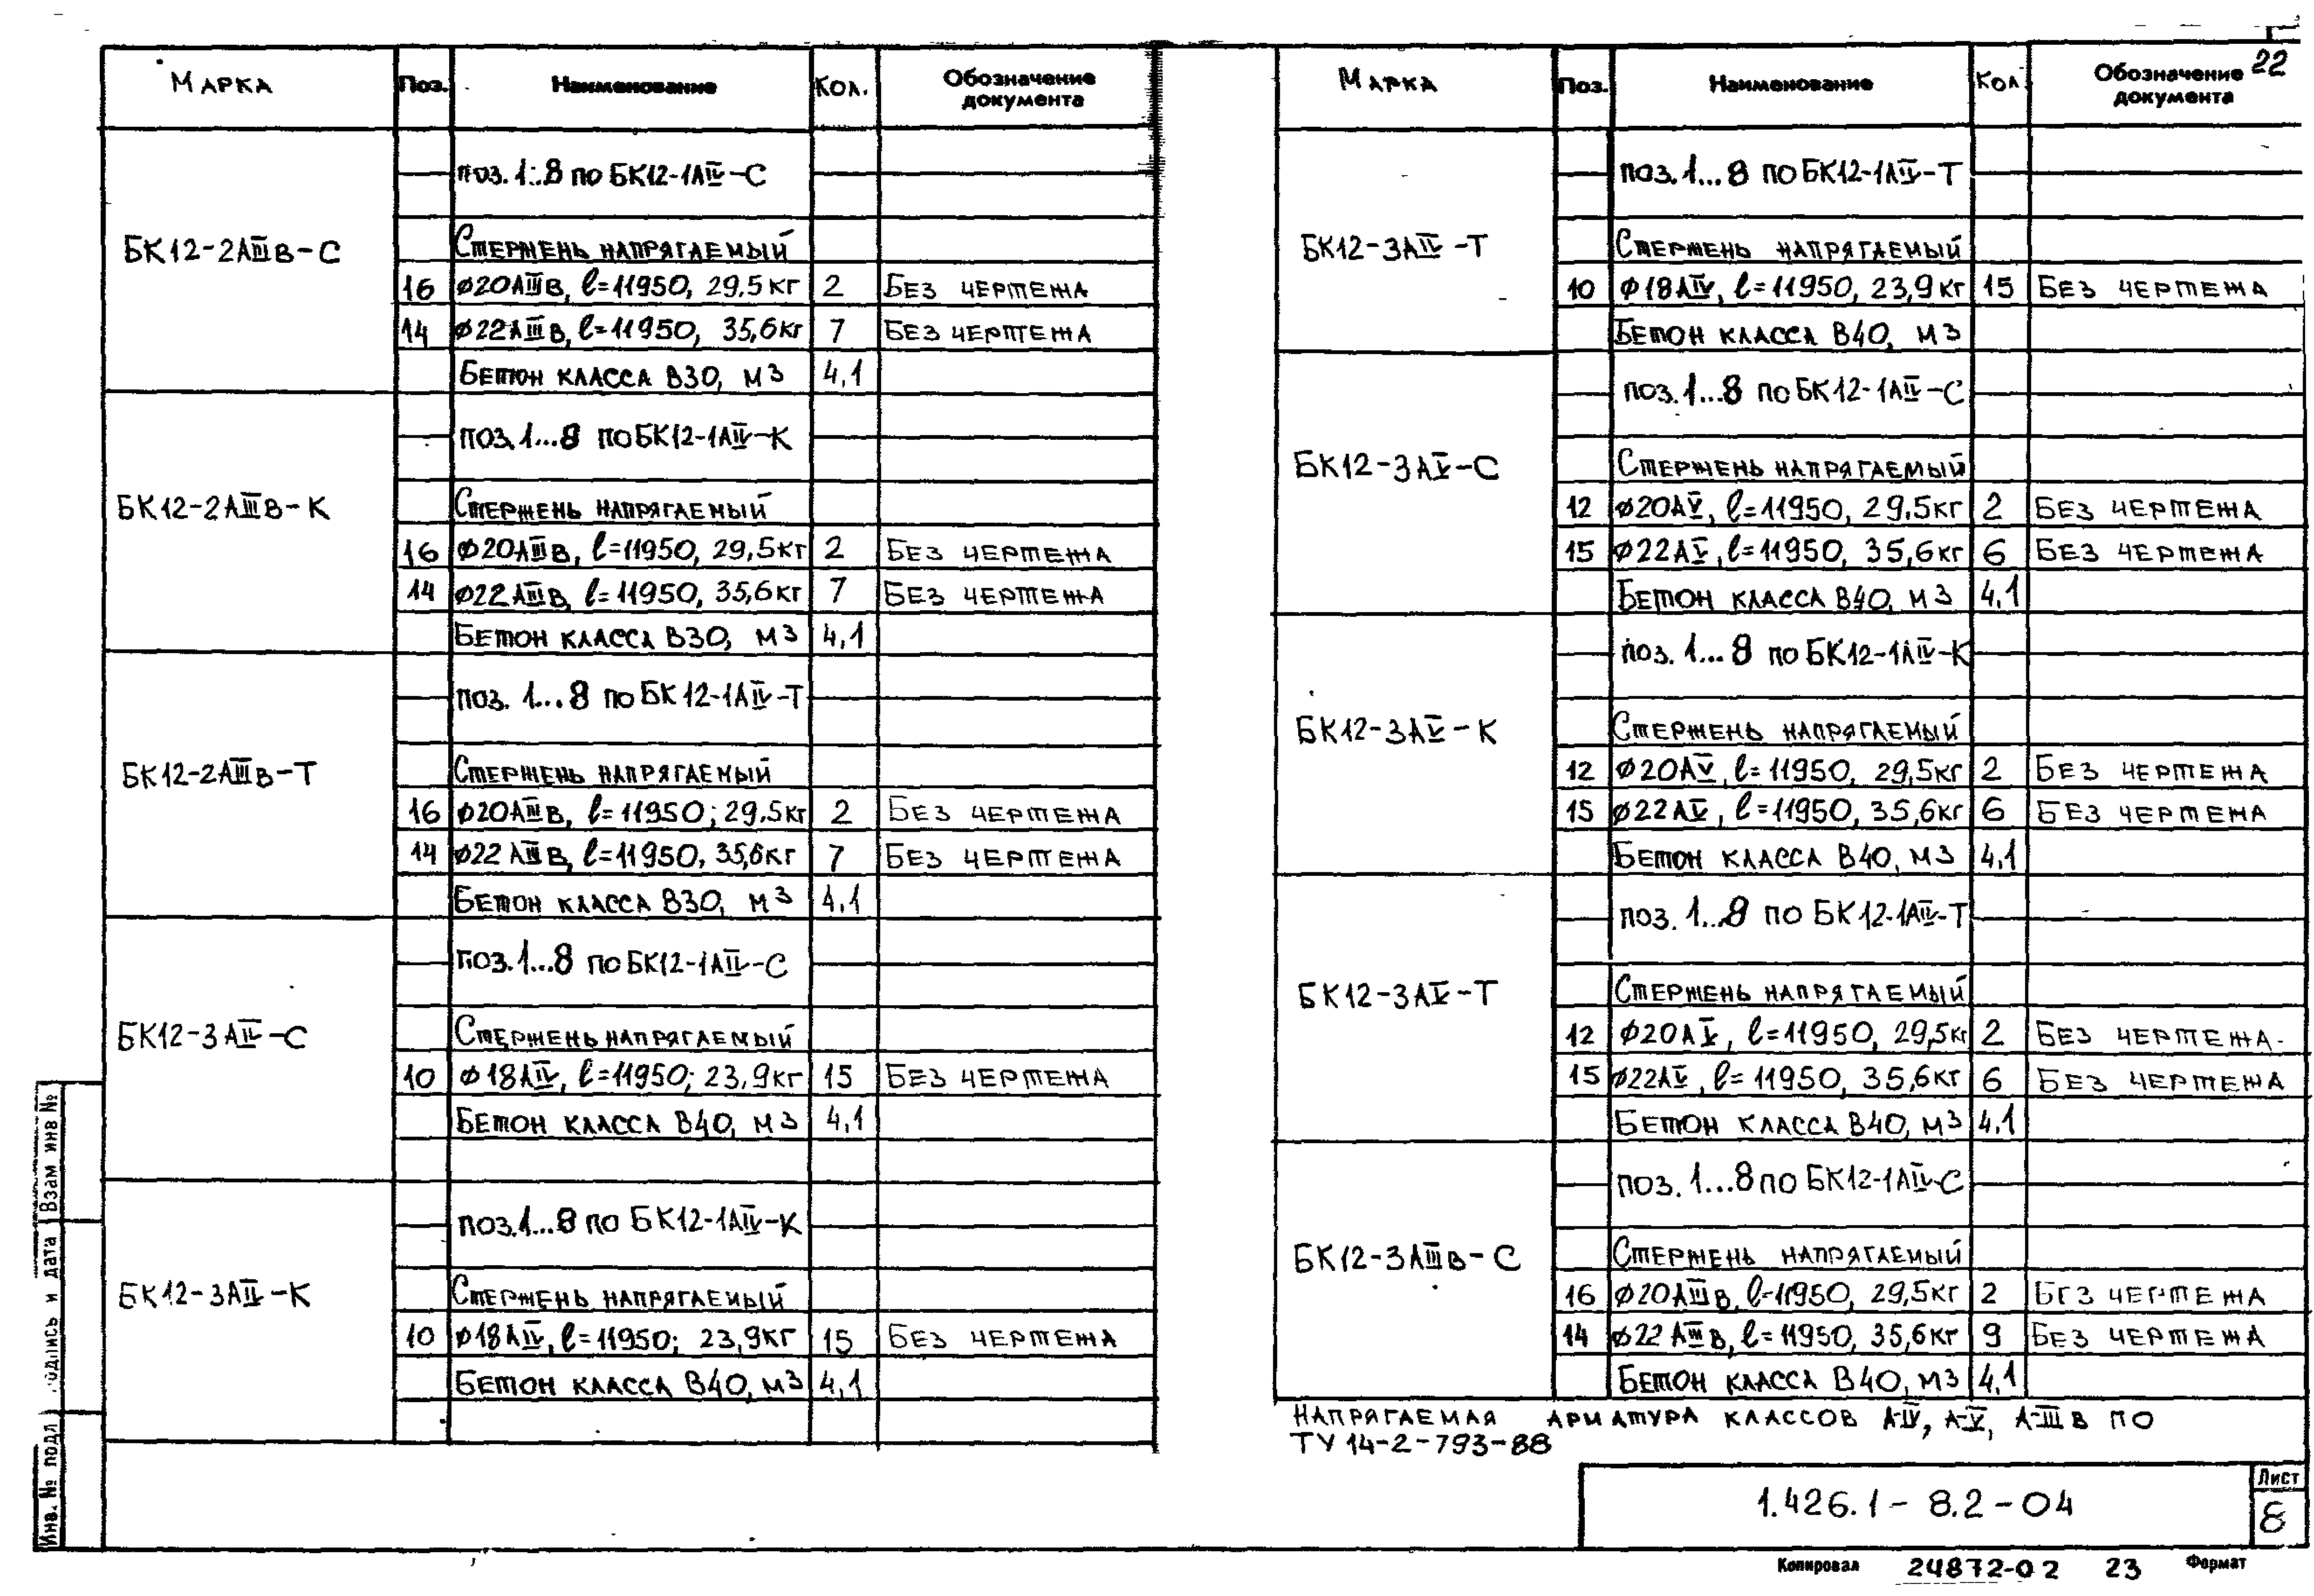 22
Марка Поз. Наименование Кол. Обозначение документа
поз. 1...8 по БК12-1АIV-С
БК12-2АIIIв-С
Стержень напрягаемый
16 ⌀20АIIIв, ℓ=11950, 29.5кг 2 Без чертежа
14 ⌀22АIIIв, ℓ=11950, 35,6кг 7 Без чертежа
Бетон класса В30, м3 4,1
поз. 1...8 по БК12-1АIV-К
БК12-2АIIIв-К
Стержень напрягаемый
16 ⌀20АIIIв, ℓ=11950, 29,5кг 2 Без чертежа
14 ⌀22АIIIв, ℓ=11950, 35,6кг 7 Без чертежа
Бетон класса В30, м3 4,1
поз. 1...8 по БК12-1АIV-Т
БК12-2АIIIв-Т
Стержень напрягаемый
16 ⌀20АIIIв, ℓ=11950; 29.5кг 2 Без чертежа
14 ⌀22АIIIв, ℓ=11950, 35,6кг 7 Без чертежа
Бетон класса В30, м3 4,1
поз. 1...8 по БК12-1АIV-С
БК12-3АIV-С
Стержень напрягаемый
10 ⌀18АIV, ℓ=11950; 23,9кг 15 Без чертежа
Бетон класса В40, м3 4,1
поз. 1...8 по БК12-1АIV-К
БК12-3АIV-К
Стержень напрягаемый
10 ⌀18АIV, ℓ=11950; 23,9кг 15 Без чертежа
Бетон класса В40, м3 4,1
Марка Поз. Наименование Кол. Обозначение документа
поз. 1...8 по БК12-1АIV-Т
БК12-3АIV-Т
Стержень напрягаемый
10 ⌀18АIV, ℓ=11950, 23,9кг 15 Без чертежа
Бетон класса В40, м3
поз. 1...8 по БК12-1АIV-С
БК12-3АV-С
Стержень напрягаемый
12 ⌀20АV, ℓ=11950, 29,5кг 2 Без чертежа
15 ⌀22АV, ℓ=11950, 35,6кг 6 Без чертежа
Бетон класса В40, м3 4,1
поз. 1...8 по БК12-1АIV-К
БК12-3АV-К
Стержень напрягаемый
12 ⌀20АV, ℓ=11950, 29,5кг 2 Без чертежа
15 ⌀22АV, ℓ=11950, 35,6кг 6 Без чертежа
Бетон класса В40, м3 4,1
поз. 1...8 по БК12-1АIV-Т
БК12-3АV-Т
Стержень напрягаемый
12 ⌀20АV, ℓ=11950, 29,5кг 2 Без чертежа
15 ⌀22АV, ℓ=11950, 35,6кг 6 Без чертежа
Бетон класса В40, м3 4,1
поз. 1...8 по БК12-1АIV-С
БК12-3АIIIв-С
Стержень напрягаемый
16 ⌀20АIIIв, ℓ=11950, 29,5кг 2 Без чертежа
14 ⌀22АIIIв, ℓ=11950, 35,6кг 9 Без чертежа
Бетон класса В40, м3 4,1
Напрягаемая арматура классов А-IV, А-V, А-IIIв по
ТУ 14-2-793-88
1.426.1-8.2-04
Лист
8
Инв. № подл Подпись и дата Взам инв №
Копировал 24872-02 23 Формат